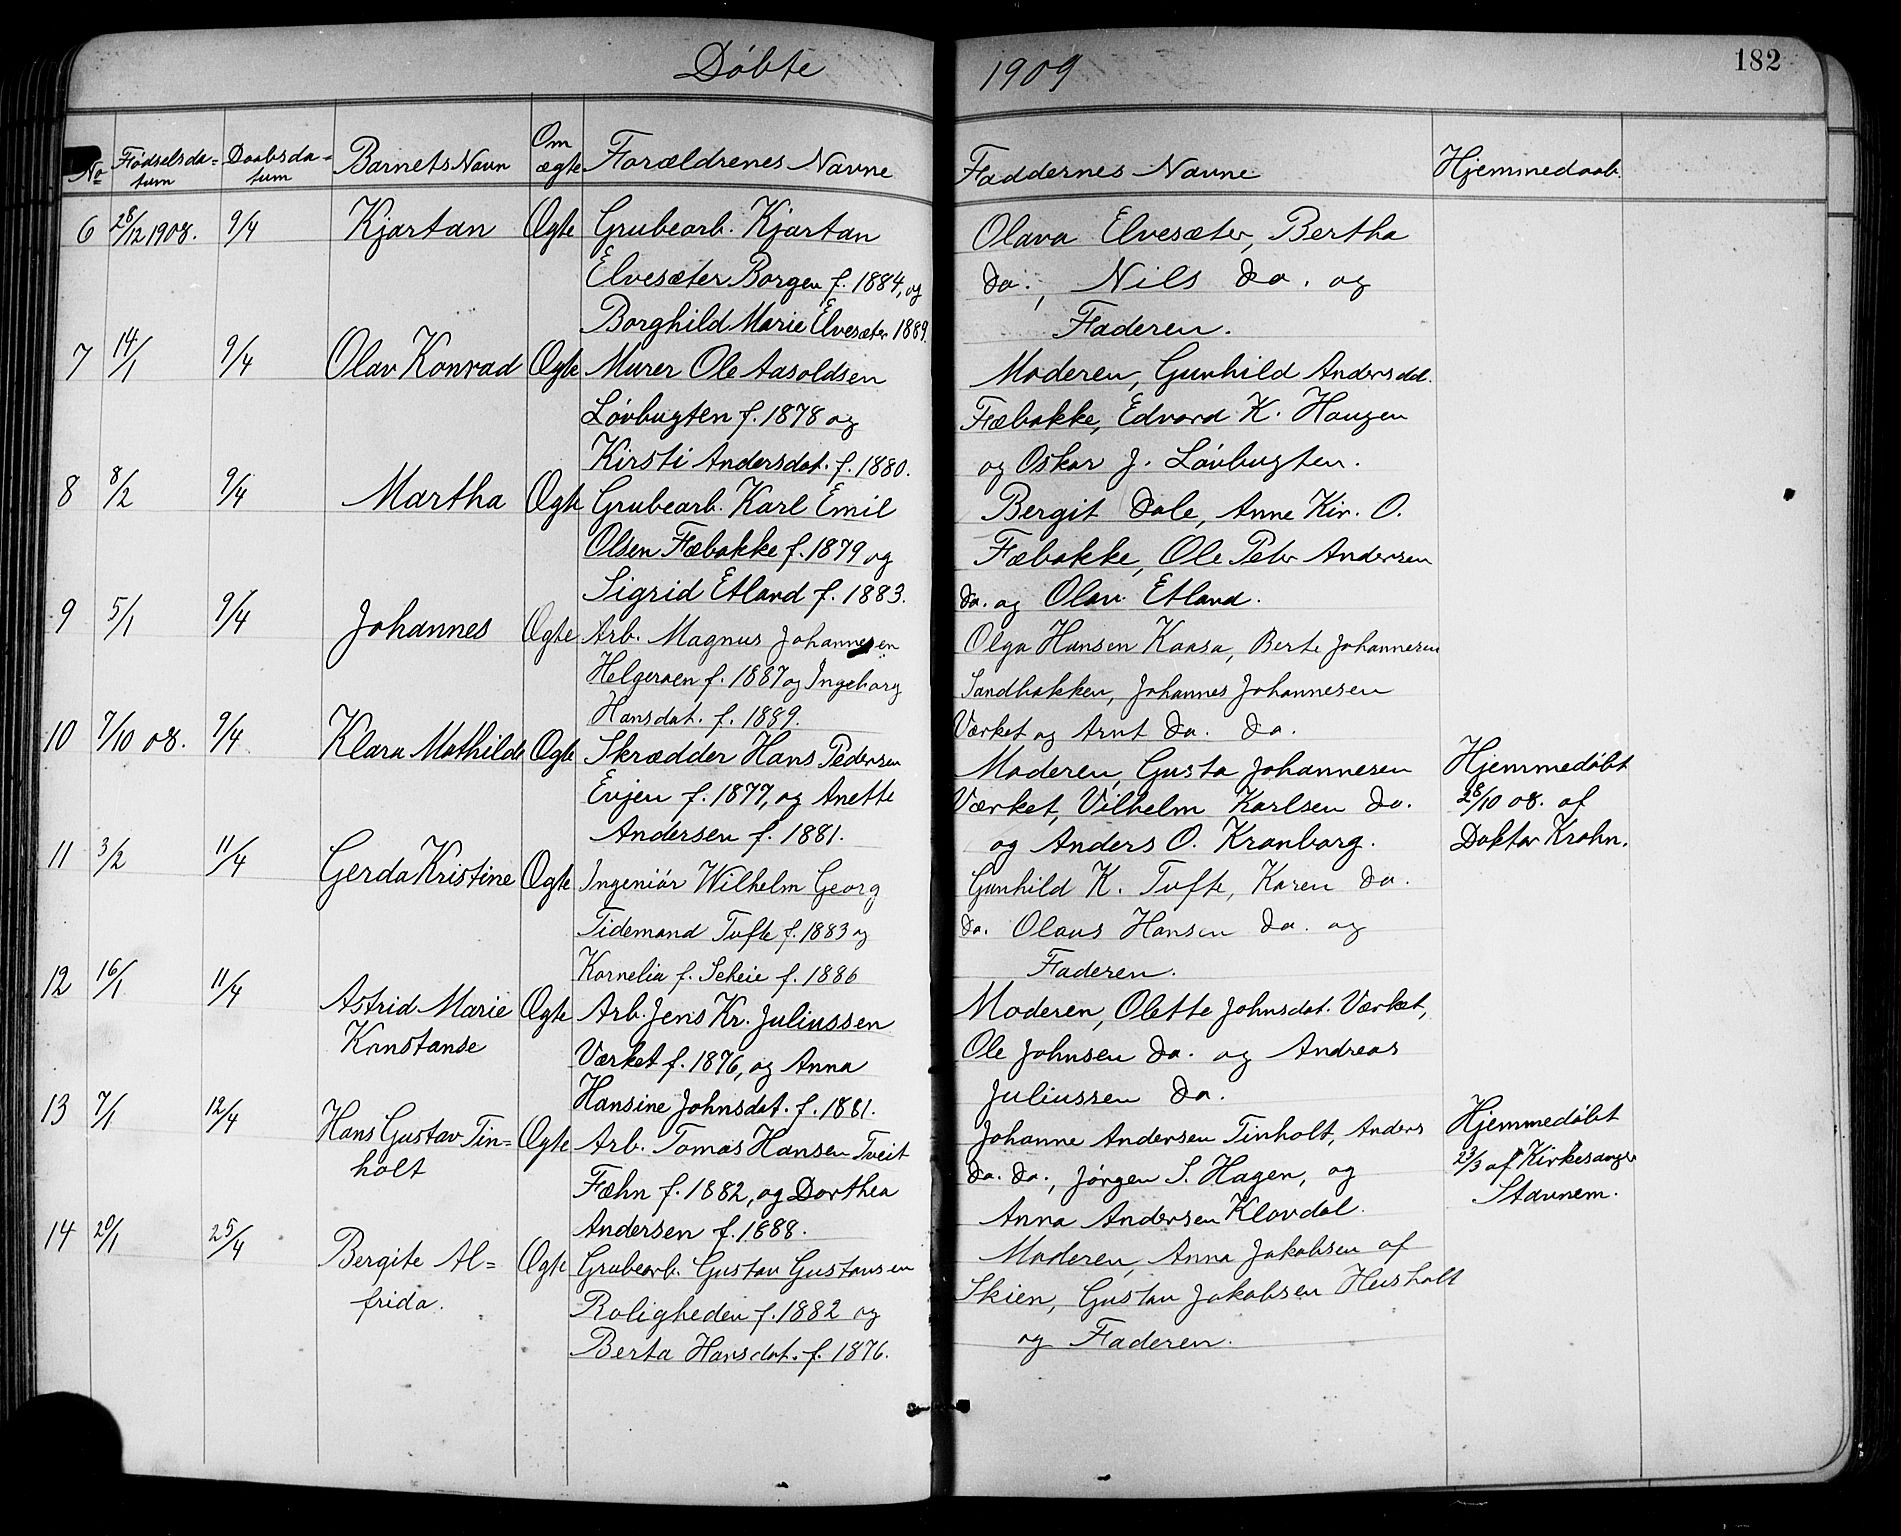 Döbte 1909 182
No Födselsdatum Daabsdatum Barnets Navn Om ægte Forældrenes Navne Faddernes Navne Hjemmedaab
6 28/12 1908. 9/4 Kjartan Ægte Grubearb. Kjartan Olava Elvesæter, Bertha
Elvesæter Borgen f. 1884, og do., Nils do. og
Borghild Marie Elvesæter 1889. Faderen.
7 14/1 9/4 Olav Konrad Ægte Murer Ole Aasoldsen Moderen, Gunhild Andersdal.
Lövbugten f. 1878 og Fæbakke, Edvard K. Haugen
Kirsti Andersdat. f. 1880. og Oskar J. Lövbugten.
8 8/2 9/4 Martha Ægte Grubearb. Karl Emil Bergit Dale, Anne Kir. O.
Olsen Fæbakke f. 1879 og Fæbakke, Ole Peter Andersen
Sigrid Etland f. 1883. do. og Olav Etland.
9 5/1 9/4 Johannes Ægte Arb. Magnus Johannesen Olga Hansen Kaasa, Berte Johannesen
Helgeraen f. 1887 og Ingeborg Sandbakken, Johannes Johannesen
Hansdat. f. 1889. Værket og Arnt do. do.
10 7/10 08. 9/4 Klara Mathilde Ægte Skrædder Hans Pedersen Moderen, Gusta Johannesen Hjemmedöbt
Evjen f. 1877, og Anette Værket, Vilhelm Karlsen do. 28/10 08. af
Andersen f. 1881. og Anders O. Kranborg. Doktor Krohn.
11 3/2 11/4 Gerda Kristine Ægte Ingeniör Wilhelm Georg Gunhild K. Tufte, Karen do.
Tidemand Tufte f. 1883 og do. Olaus Hansen do. og
Kornelia f. Scheie f. 1886 Faderen.
12 16/1 11/4 Astrid Marie Ægte Arb. Jens Kr. Juliussen Moderen, Olette Johnsdat. Værket,
Konstanse Værket f. 1876, og Anna Ole Johnsen do. og Andreas
Hansine Johnsdat. f. 1881. Juliussen do.
13 7/1 12/4 Hans Gustav Tin= Ægte Arb. Tomas Hansen Tveit Johanne Andersen Tinholt, Anders Hjemmedöbt
holt Fæhn f. 1882, og Dorthea do. do., Jørgen S. Hagen, og 23/3 af Kirkesanger
Andersen f. 1888. Anna Andersen Klovdal. Stavnem.
14 20/1 25/4 Bergite Al= Ægte Grubearb. Gustav Gustavsen Moderen, Anna Jakobsen af
frida. Roligheden f. 1882 og Skien, Gustav Jakobsen Husholt
Berta Hansdat. f. 1876. og Faderen.